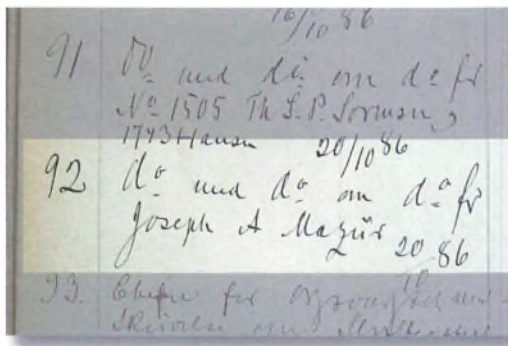 16/10 86
91 Do. und do. om do. fr
No. 1505 Th. S. P. Sorman,
1743 Hansen 20/10 86
92 do. und do. om do. fr
Joseph A Mazür 20/10 86
93. for
om